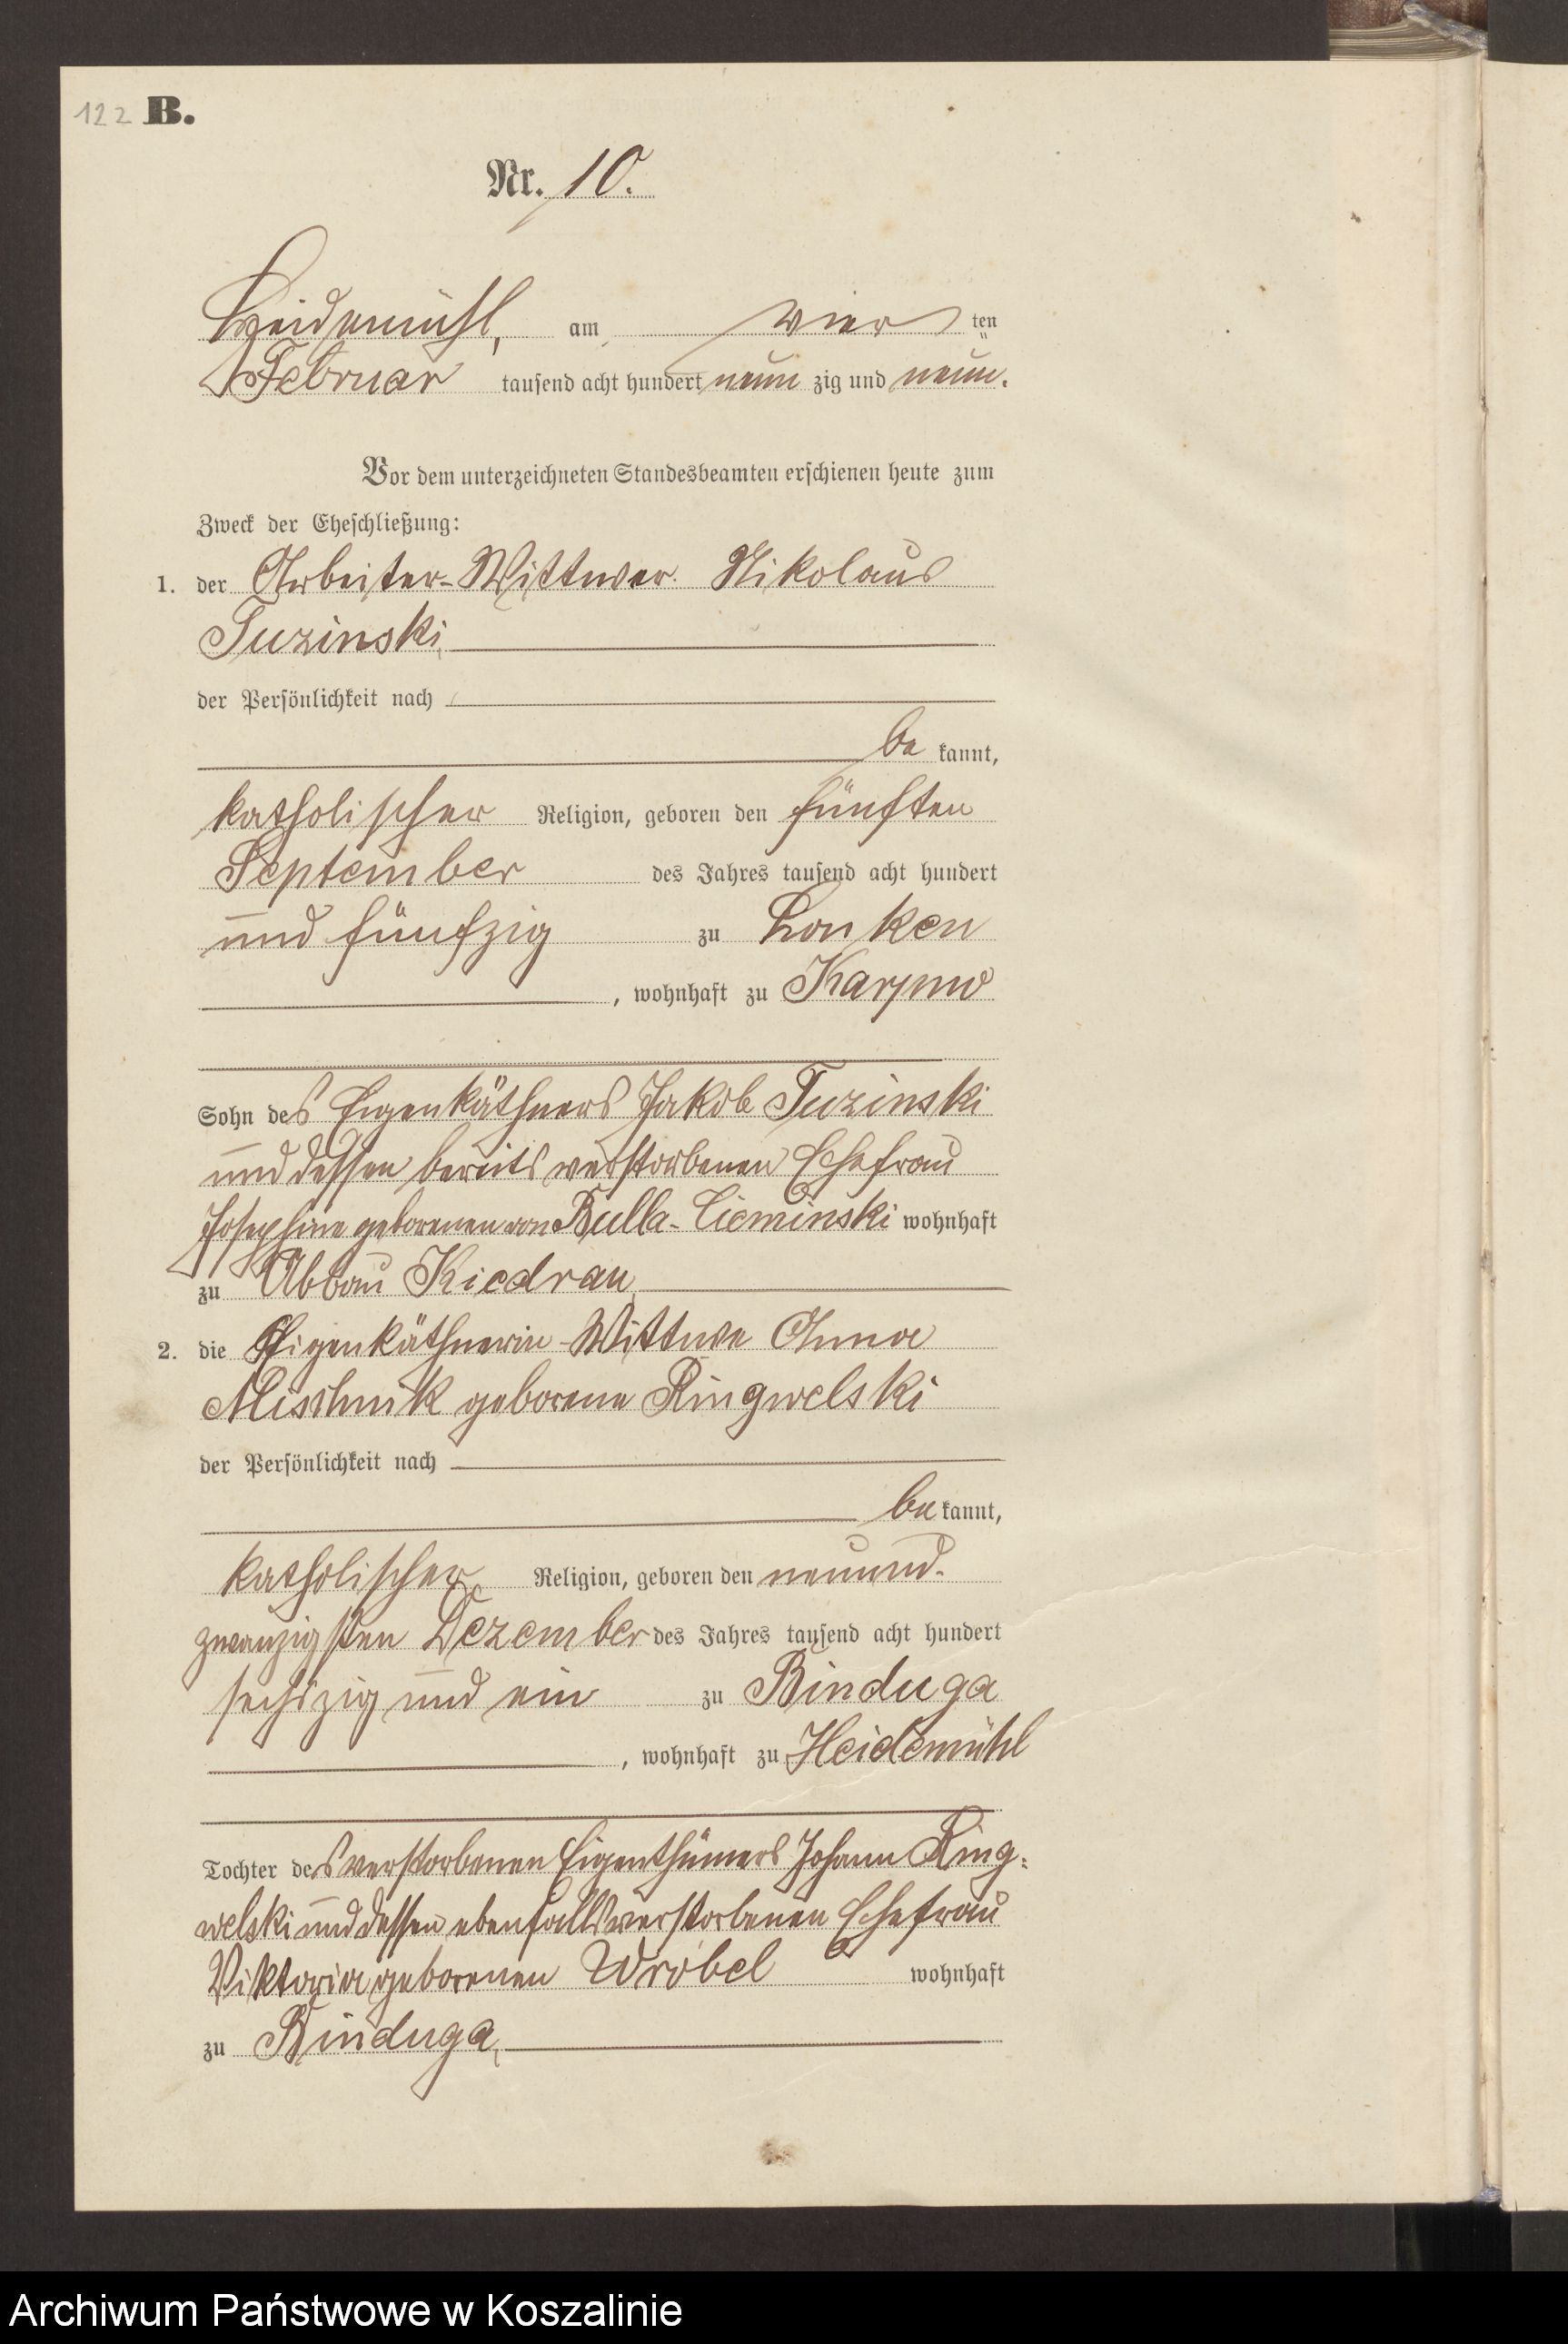 122 B.
Nr. 10.
Heidemühl, am vier ten
Februar tausend acht hundert neun zig und neun.
Vor dem unterzeichneten Standesbeamten erschienen heute zum
Zweck der Eheschließung:
1. der Arbeiter-Wittwer Nikolaus
Tuzinski,
der Persönlichkeit nach
be kannt,
katholischer Religion, geboren den fünften
September des Jahres tausend acht hundert
und fünfzig zu Lonken
, wohnhaft zu Karpno
Sohn des Eigenkäthners Jakob Tuzinski
und dessen bereits verstorbenen Ehefrau
Josephine geborenen von Bulla-Cieminski wohnhaft
zu Abbau Kiedrau,
2. die Eigenkäthnerin-Wittwe Anna
geborene Ringwelski
der Persönlichkeit nach
be kannt,
katholischer Religion, geboren den neunund-
zwanzigsten Dezember des Jahres tausend acht hundert
sechszig und ein zu Binduga
, wohnhaft zu Heidemühl
Tochter des verstorbenen Eigenthümers Johann Ring-
welski und dessen ebenfalls verstorbenen Ehefrau
Viktoria geborenen Wróbel wohnhaft
zu Binduga,
Archiwum Państwowe w Koszalinie